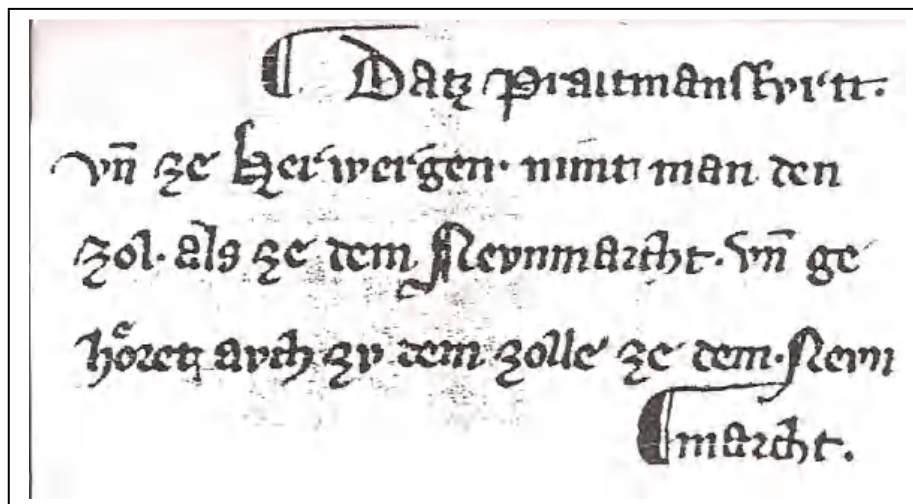 ¶ Datz Praitmansfvrtt.
vn̄ ze Herwergen· nimt man den
zol· als ze dem Nevnmarcht· vn̄ ge
hoͤrent avch zv dem zolle ze dem· Nevn
¶ marcht.